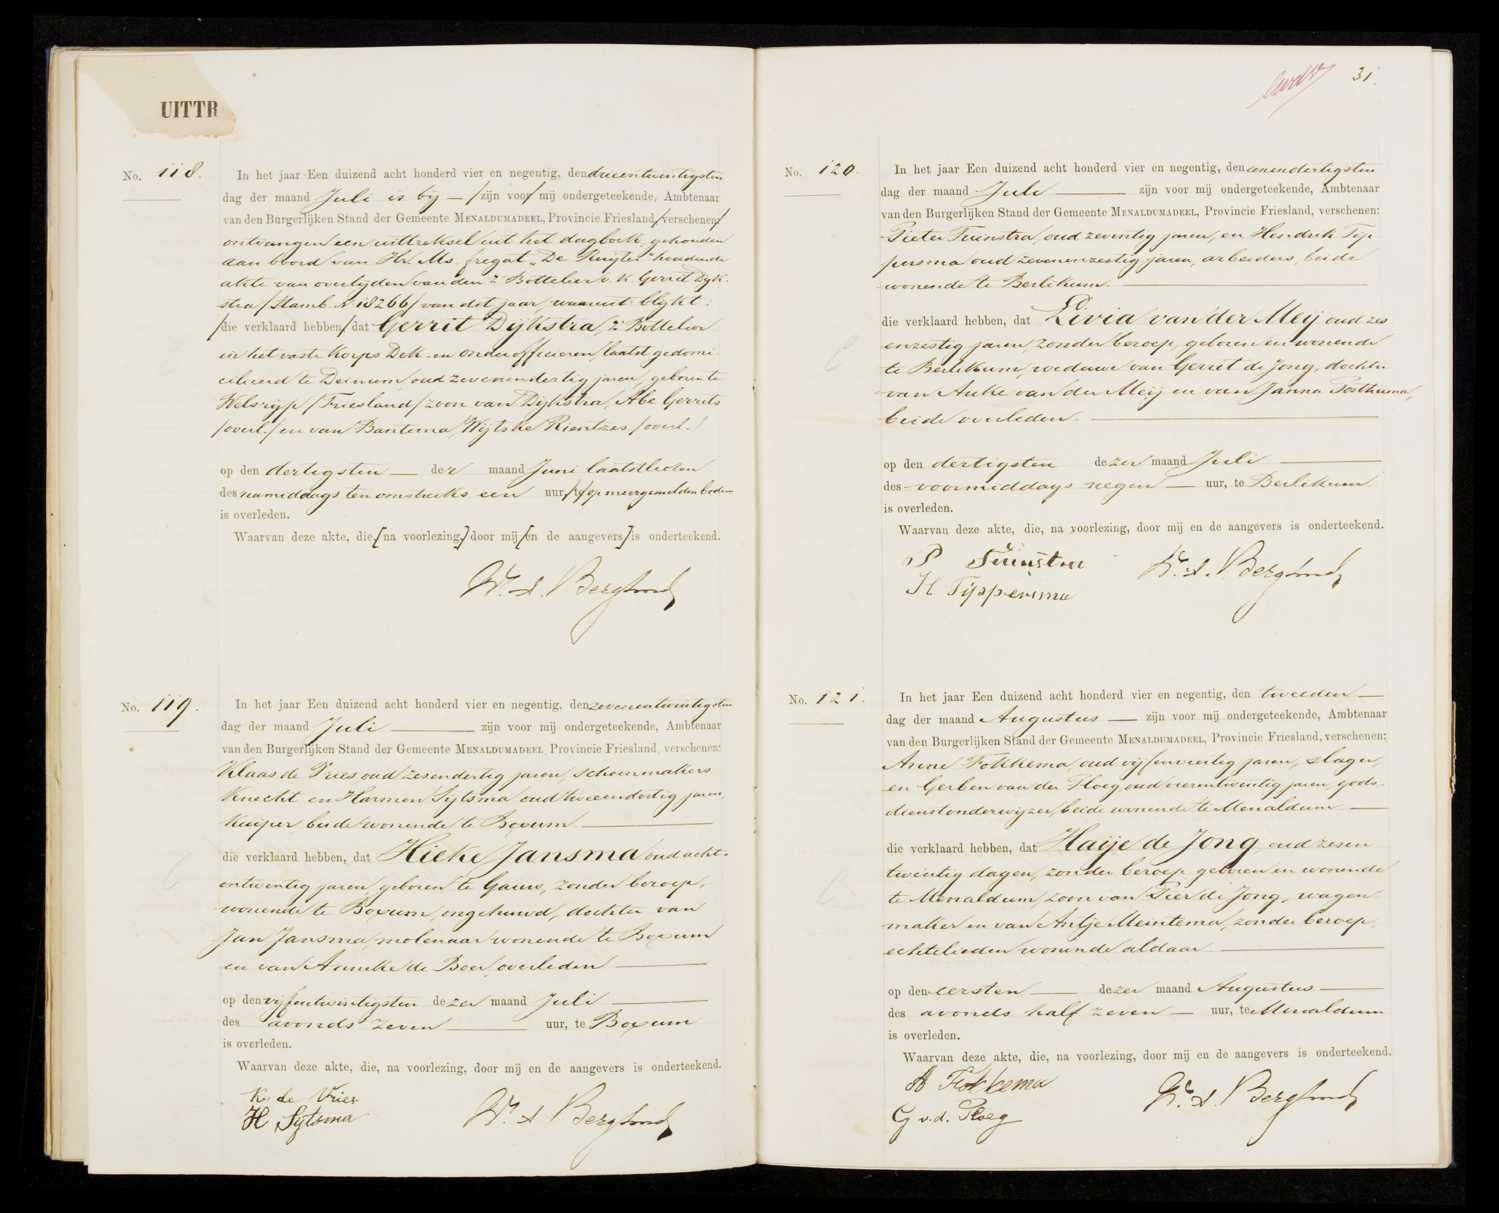 UITTR
No. 118. In het jaar Een duizend acht honderd vier en negentig, den drieentwintigsten
dag der maand Juli is bij — /zijn voor/ mij ondergeteekende, Ambtenaar
van den Burgerlijken Stand der Gemeente MENALDUMADEEL, Provincie Friesland /verschenen/
ontvangen een uittreksel uit het dagboek, gehouden
aan boord van Hr. Ms. fregat "De Ruijter" houdende
akte van overlijden van den 2e Bottelier v. k. Gerrit Dijk-
stra /Stamb. No 18266/ van dit jaar waaruit blijkt:
/die verklaard hebben/ dat Gerrit Dijkstra, 2e Bottelier
in het vaste korps Dek- en onderofficieren, laatst gedomi
cilieerd te Deinum, oud zevenendertig jaren, geboren te
Welsrijp /Friesland/ zoon van Dijkstra, Abe Gerrits
/overl./ en van Bantema, Wijtske Rientzes /overl./
op den dertigsten — der maand Juni laatstleden
des namiddags ten omstreeks een uur, /te/ op meergemelden bodem
is overleden.
Waarvan deze akte, die [na voorlezing,] door mij [en de aangevers] is onderteekend.
Wr. A. Berghuis
No. 119. In het jaar Een duizend acht honderd vier en negentig, den zevenentwintigsten
dag der maand Juli — zijn voor mij ondergeteekende, Ambtenaar
van den Burgerlijken Stand der Gemeente MENALDUMADEEL Provincie Friesland, verschenen:
Klaas de Vries oud zesendertig jaren, schoenmakers
knecht en Harmen Sijtsma oud tweeendertig jaren,
kuiper beide wonende te Boxum —
die verklaard hebben, dat Hieke Jansma oud acht-
entwintig jaren, geboren te Gauw, zonder beroep,
wonende te Boxum, ongehuwd, dochter van
Jan Jansma, molenaar wonende te Boxum
en van Anneke de Boer, overleden —
op den vijfentwintigsten dezer maand Juli —
des avonds zeven — uur, te Boxum
is overleden.
Waarvan deze akte, die, na voorlezing, door mij en de aangevers is onderteekend.
K. de Vries
H Sytsma
Wr. A. Berghuis
31.
No. 120. In het jaar Een duizend acht honderd vier en negentig, den eenendertigsten
dag der maand Juli — zijn voor mij ondergeteekende, Ambtenaar
van den Burgerlijken Stand der Gemeente MENALDUMADEEL, Provincie Friesland, verschenen:
Pieter Tuinstra, oud zeventig jaren, en Hendrik Tip
persma oud zevenenzestig jaren, arbeiders, beide
wonende te Berlikum. —
die verklaard hebben, dat Livia van der Meij oud zes
enzestig jaren, zonder beroep, geboren en wonende
te Berlikum, weduwe van Gerrit de Jong, dochter
van Auke van der Meij en van Janna Posthuma,
beide overleden. —
op den dertigsten dezer maand Juli —
des voormiddags negen — uur, te Berlikum
is overleden.
Waarvan deze akte, die, na voorlezing, door mij en de aangevers is onderteekend.
P Tuinstra
H Tippersma
Wr. A. Berghuis
No. 121. In het jaar Een duizend acht honderd vier en negentig, den tweeden —
dag der maand Augustus — zijn voor mij ondergeteekende, Ambtenaar
van den Burgerlijken Stand der Gemeente MENALDUMADEEL, Provincie Friesland, verschenen:
Anne Fokkema, oud vijfenveertig jaren, slager,
en Gerben van der Ploeg oud vierentwintig jaren, gods-
dienstonderwijzer, beide wonende te Menaldum —
die verklaard hebben, dat Haije de Jong oud zesen
twintig dagen, zonder beroep geboren en wonende
te Menaldum, zoon van Pier de Jong, wagen
maker en van Antje Meintema, zonder beroep,
echtelieden wonende aldaar —
op den eersten — dezer maand Augustus —
des avonds half zeven — uur, te Menaldum
is overleden.
Waarvan deze akte, die, na voorlezing, door mij en de aangevers is onderteekend.
A Fokkema
G v.d. Ploeg
Wr. A. Berghuis